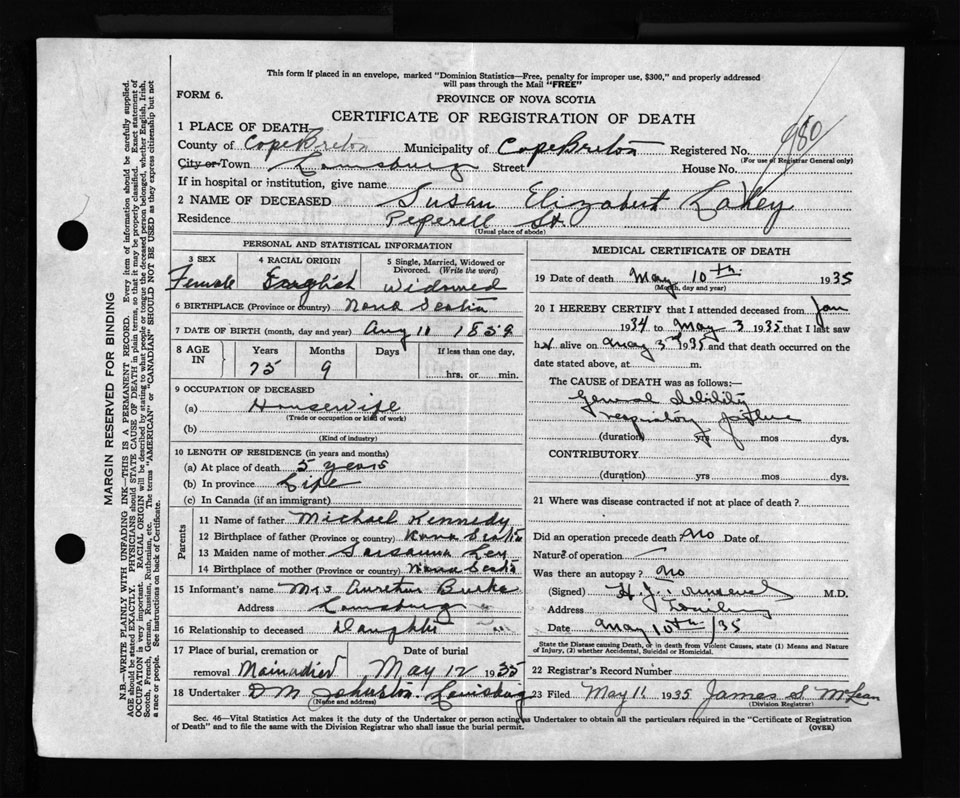 This form if placed in an envelope, marked "Dominion Statistics—Free, penalty for improper use, $300," and properly addressed
will pass through the Mail "FREE"
FORM 6.
PROVINCE OF NOVA SCOTIA
CERTIFICATE OF REGISTRATION OF DEATH
980
1 PLACE OF DEATH
County of Cape Breton Municipality of Cape Breton Registered No.
(For use of Registrar General only)
City or Town Louisburg Street House No.
If in hospital or institution, give name
2 NAME OF DECEASED Susan Elizabeth Lahey
Residence Peperell St.
(Usual place of abode)
PERSONAL AND STATISTICAL INFORMATION
3 SEX 4 RACIAL ORIGIN 5 Single, Married, Widowed or Divorced. (Write the word)
Female English Widowed
6 BIRTHPLACE (Province or country) Nova Scotia
7 DATE OF BIRTH (month, day and year) Aug 11 1859
8 AGE IN Years Months Days If less than one day,
75 9 hrs. or min.
9 OCCUPATION OF DECEASED
(a) Housewife
(Trade or occupation or kind of work)
(b)
(Kind of industry)
10 LENGTH OF RESIDENCE (in years and months)
(a) At place of death 5 years
(b) In province Life
(c) In Canada (if an immigrant)
Parents
11 Name of father Michael Kennedy
12 Birthplace of father (Province or country) Nova Scotia
13 Maiden name of mother
14 Birthplace of mother (Province or country) Nova Scotia
15 Informant's name Mrs Burke
Address Louisburg
16 Relationship to deceased Daughter
17 Place of burial, cremation or removal Date of burial
Mainadieu May 12 1935
18 Undertaker D M Johnston Louisburg
(Name and address)
MEDICAL CERTIFICATE OF DEATH
19 Date of death May 10th 1935
(Month, day and year)
20 I HEREBY CERTIFY that I attended deceased from Jan
1934 to May 3 1935 that I last saw
her alive on May 3rd 1935 and that death occurred on the
date stated above, at m.
The CAUSE of DEATH was as follows:—
General debility
respiratory
(duration) yrs mos dys.
CONTRIBUTORY
(duration) yrs mos dys.
21 Where was disease contracted if not at place of death?
Did an operation precede death No Date of
Nature of operation
Was there an autopsy? No
(Signed) H. J. M.D.
Address Louisburg
Date May 10th /35
State the Disease causing Death, or in death from Violent Causes, state (1) Means and Nature
of Injury, (2) whether Accidental, Suicidal or Homicidal.
22 Registrar's Record Number
23 Filed May 11 1935 James S McLean
(Division Registrar)
Sec. 46—Vital Statistics Act makes it the duty of the Undertaker or person acting as Undertaker to obtain all the particulars required in the "Certificate of Registration
of Death" and to file the same with the Division Registrar who shall issue the burial permit.
(OVER)
MARGIN RESERVED FOR BINDING
N.B.—WRITE PLAINLY WITH UNFADING INK—THIS IS A PERMANENT RECORD. Every item of information should be carefully supplied.
AGE should be stated EXACTLY. PHYSICIANS should STATE CAUSE OF DEATH in plain terms, so that it may be properly classified. Exact statement of
OCCUPATION is very important. RACIAL ORIGIN will be described by stating to what people or tongue the deceased person belonged, whether English, Irish,
Scotch, French, German, Russian, Ruthenian, etc. The terms "AMERICAN" or "CANADIAN" SHOULD NOT BE USED as they express citizenship but not
a race or people. See instructions on back of Certificate.